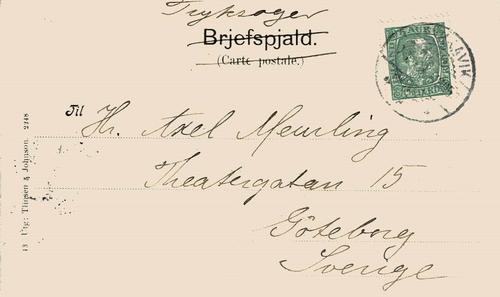 Tryksager
Brjefspjald.
(Carte postale.)
Til Hr. Axel Meurling
Theatergatan 15
Göteborg
Sverige
13 Utg: Thomsen & Johnson. 2248